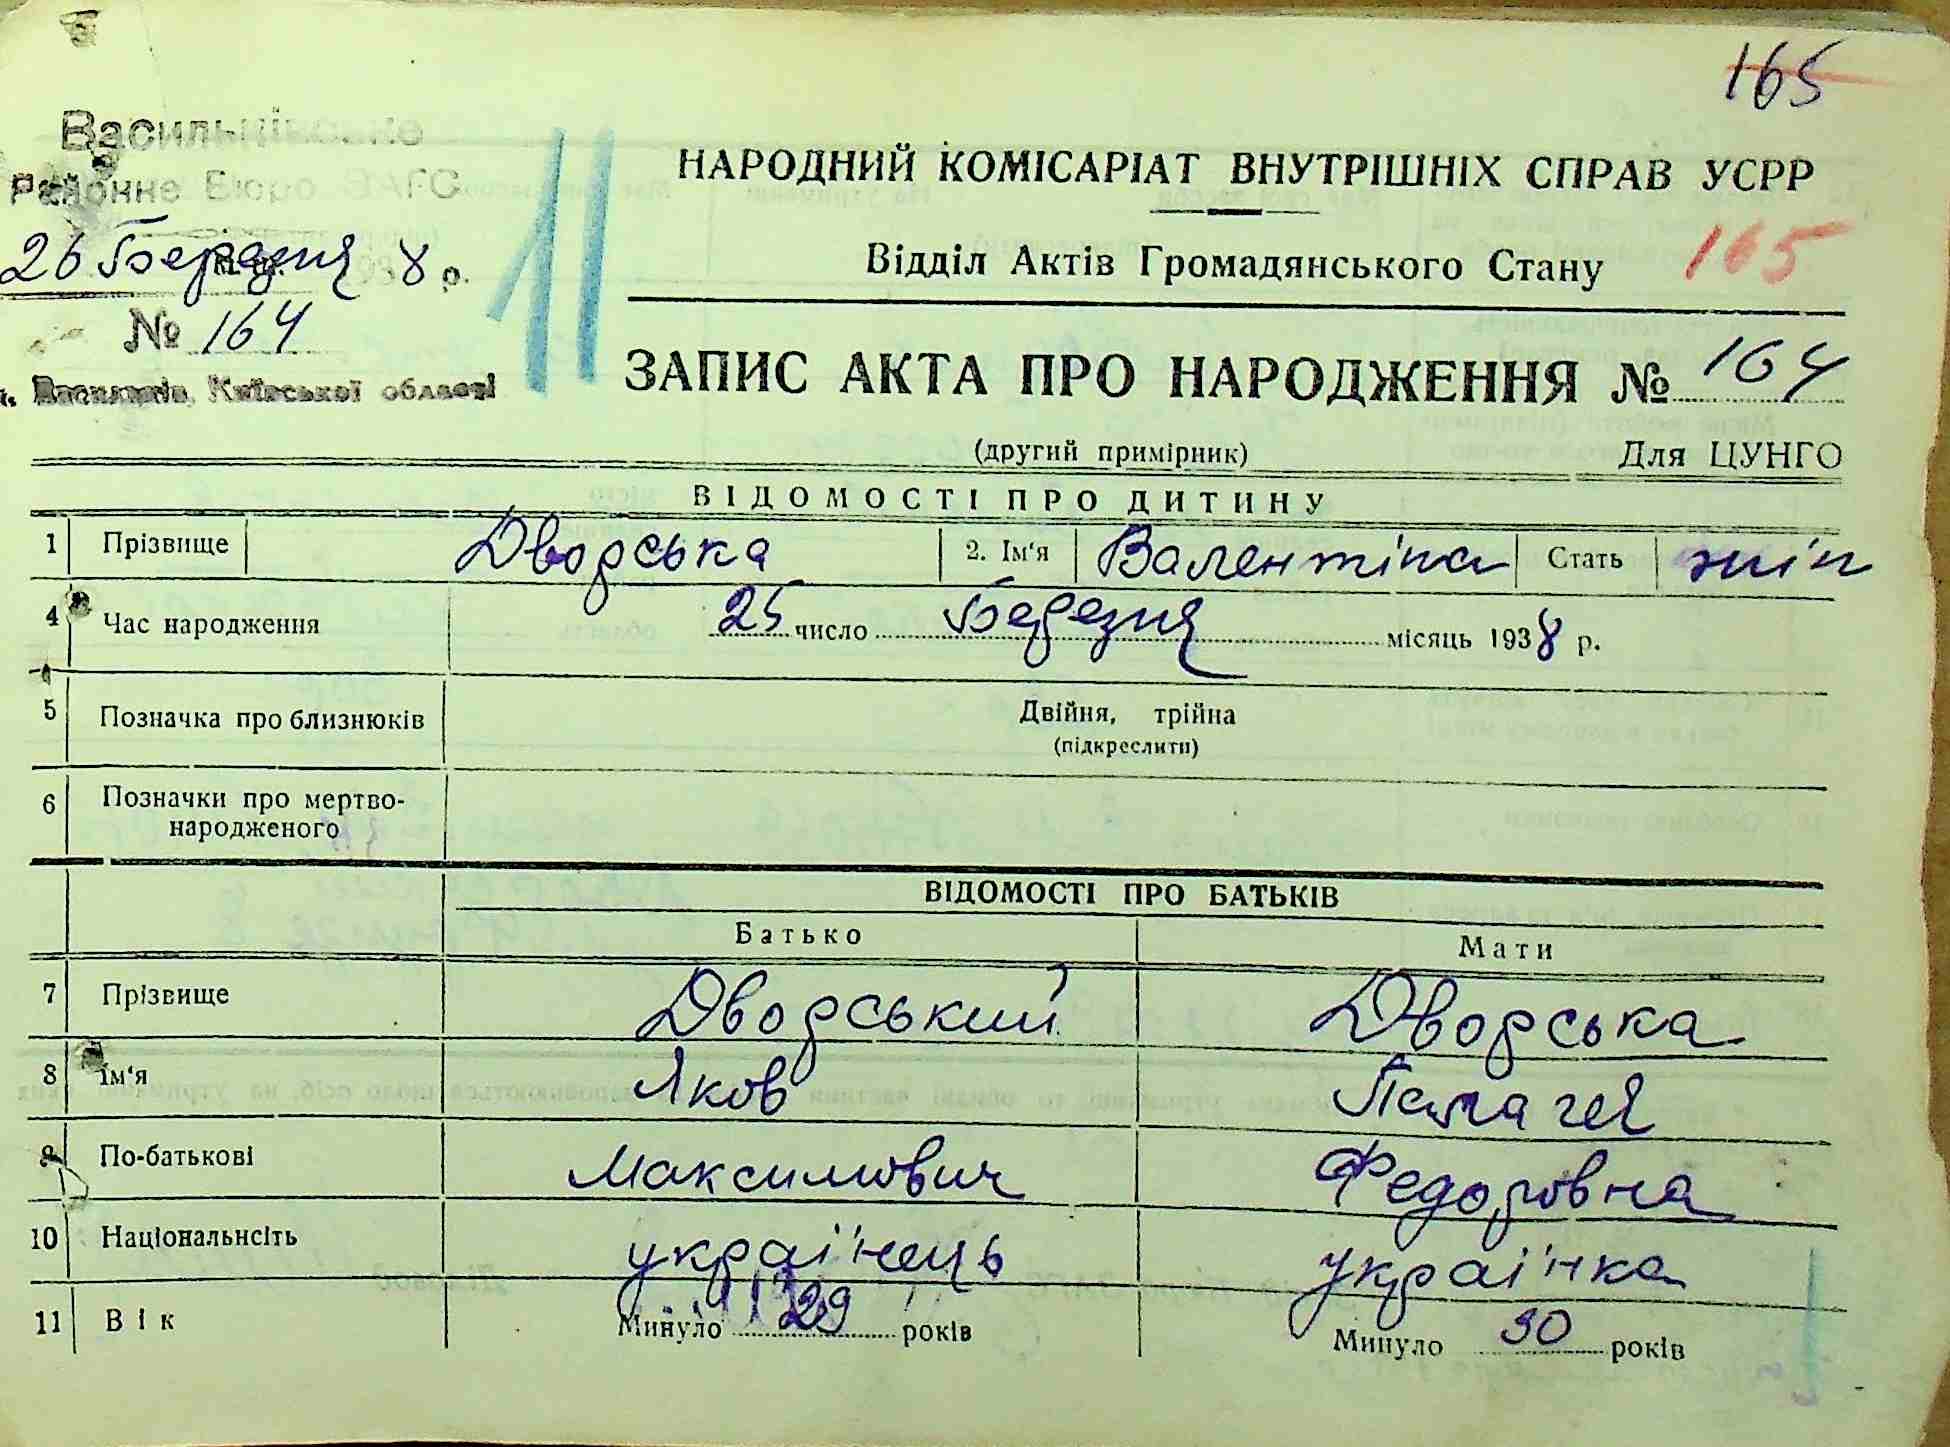 165
Васильківське
Районне Бюро ЗАГС
26 Березня 1938 р.
№ 164
м. Васильків, Київської області
11
НАРОДНИЙ КОМІСАРІАТ ВНУТРІШНІХ СПРАВ УСРР
Відділ Актів Громадянського Стану 165
ЗАПИС АКТА ПРО НАРОДЖЕННЯ № 164
(другий примірник) Для ЦУНГО
ВІДОМОСТІ ПРО ДИТИНУ
1 Прізвище Дворська 2. Ім'я Валентіна Стать жін
4 Час народження 25 число Березня місяць 1938 р.
5 Позначка про близнюків Двійня, трійна
(підкреслити)
6 Позначки про мертво-
народженого
ВІДОМОСТІ ПРО БАТЬКІВ
Батько Мати
7 Прізвище Дворський Дворська
8 Ім'я Яков Пелагея
9 По-батькові Максимович Федоровна
10 Національнсіть українець українка
11 Вік Минуло 29 років Минуло 30 років